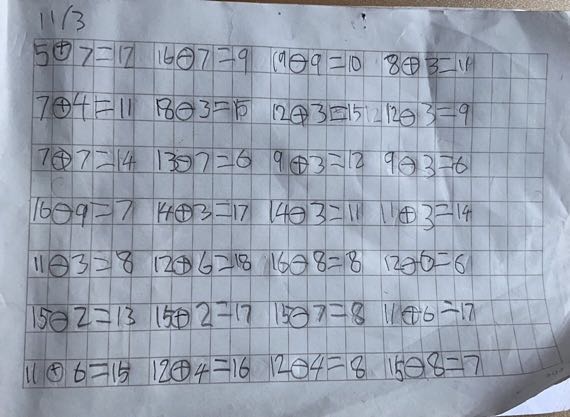 11/3
5⊕7=12 16⊖7=9 19⊖9=10 8⊕3=11
7⊕4=11 18⊖3=15 12⊕3=15 12⊖3=9
7⊕7=14 13⊖7=6 9⊕3=12 9⊖3=6
16⊖9=7 14⊕3=17 14⊖3=11 11⊕3=14
11⊖3=8 12⊕6=18 16⊖8=8 12⊖6=6
15⊖2=13 15⊕2=17 15⊖7=8 11⊕6=17
11⊕6=15 12⊕4=16 12⊖4=8 15⊖8=7